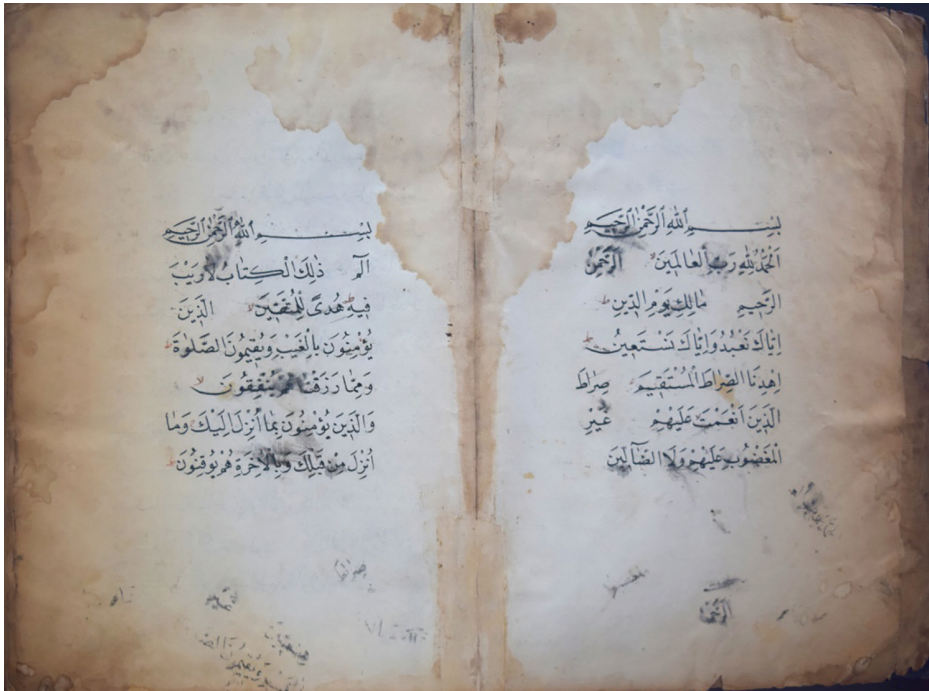 بِسْمِ ٱللّٰهِ ٱلرَّحْمٰنِ ٱلرَّحِيمِ
اَلْحَمْدُ لِلّٰهِ رَبِّ الْعَالَمِينَ ۙ اَلرَّحْمٰنِ
الرَّحِيمِ مَالِكِ يَوْمِ الدِّينِ ط
اِيَّاكَ نَعْبُدُ وَاِيَّاكَ نَسْتَعِينُ ط
اِهْدِنَا الصِّرَاطَ الْمُسْتَقِيمَ صِرَاطَ
الَّذِينَ اَنْعَمْتَ عَلَيْهِمْ غَيْرِ
الْمَغْضُوبِ عَلَيْهِمْ وَلَا الضَّٓالِّينَ
الرَّحْمٰنِ
بِسْمِ ٱللّٰهِ ٱلرَّحْمٰنِ ٱلرَّحِيمِ
الٓمٓ ذٰلِكَ الْكِتَابُ لَا رَيْبَ
فِيهِ ۛ هُدًى لِلْمُتَّقِينَ ۙ الَّذِينَ
يُؤْمِنُونَ بِالْغَيْبِ وَيُقِيمُونَ الصَّلٰوةَ ط
وَمِمَّا رَزَقْنَاهُمْ يُنْفِقُونَ ۙ
وَالَّذِينَ يُؤْمِنُونَ بِمَا اُنْزِلَ اِلَيْكَ وَمَا
اُنْزِلَ مِنْ قَبْلِكَ وَبِالْاٰخِرَةِ هُمْ يُوقِنُونَ ط
صراط